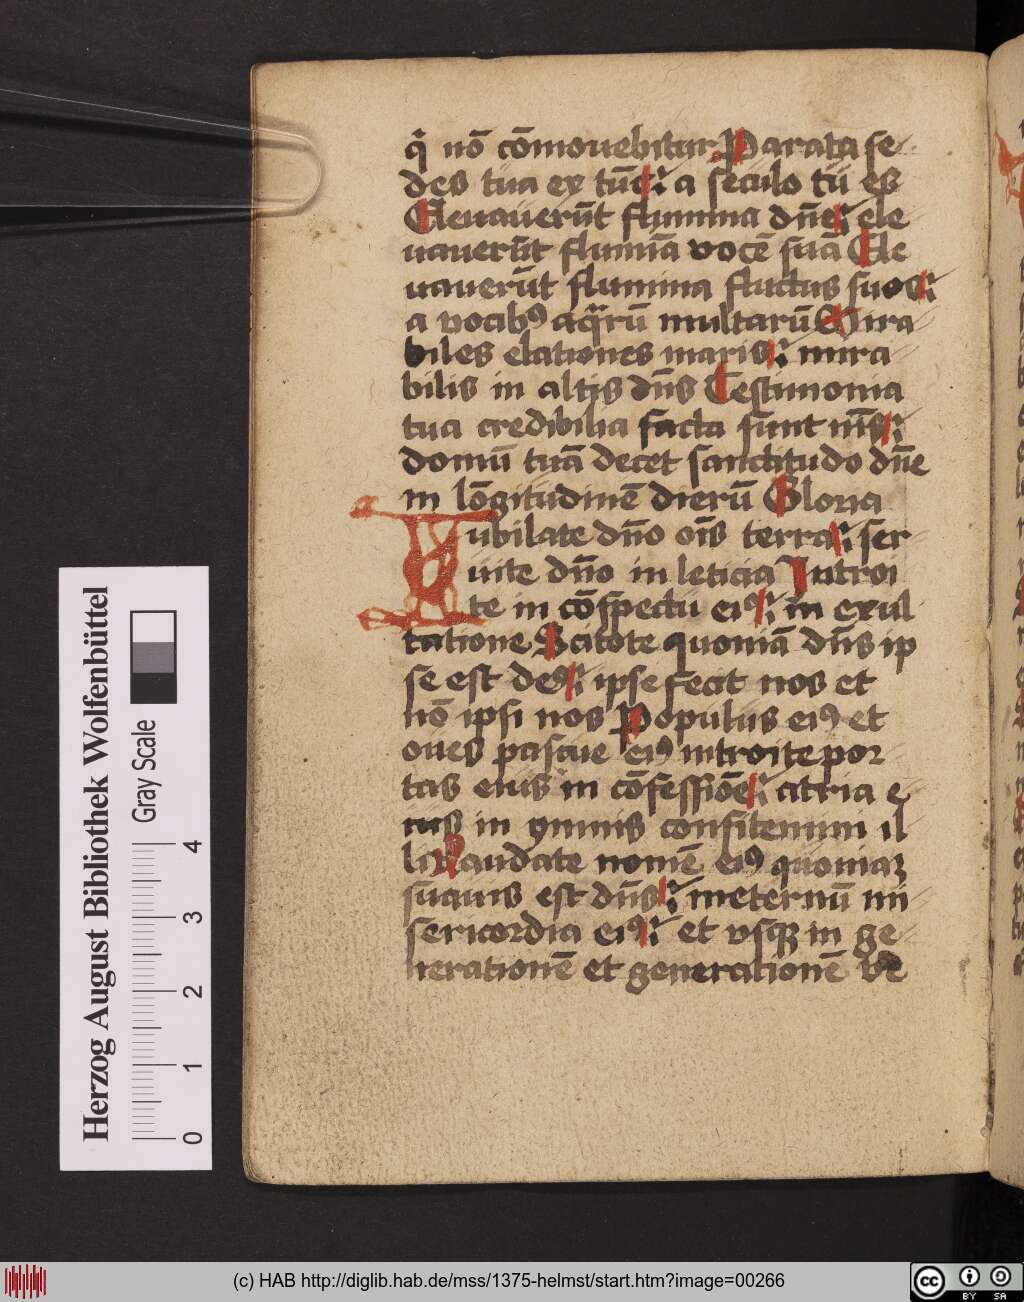 qͥ nō cōmouebitur Parata se
des tua ex tūc a seculo tu es
Eleuauerūt flumina dn̄e ele
uauerūt flumīa vocē suā Ele
uauerūt flumina fluctus suos
a vocibꝰ aquarū multarū Mira
biles elationes maris mira
bilis in altis dn̄s Testimonia
tua credibilia facta sunt nīs
domū tuā decet sanctitudo dn̄e
in lōgitudinē dierū Gloria
Iubilate dn̄o oīs terra ser
uite dn̄o in leticia Introi
te in cōspectu eiꝰ in exul
tatione Scitote quoniā dn̄s ip
se est deꝰ ipse fecit nos et
nō ipsi nos Populus eiꝰ et
oues pascue eiꝰ introite por
tas eius in cōfessiōe atria e
ius in ymnis confitemini il
li Laudate nomē eiꝰ quoniaz
suauis est dn̄s in eternū mi
sericordia eiꝰ et vsqꝫ in ge
nerationē et generationē ve
Herzog August Bibliothek Wolfenbüttel
Gray Scale
0 1 2 3 4
(c) HAB http://diglib.hab.de/mss/1375-helmst/start.htm?image=00266
cc BY SA